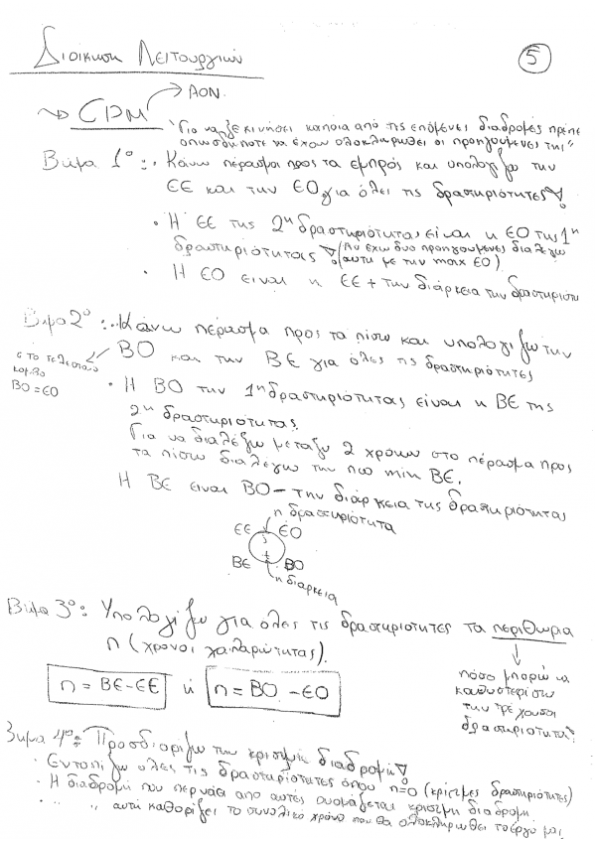 Διοίκηση Λειτουργιών
5
CPM
AON.
"Για να ξεκινήσει κάποια από τις επόμενες διαδρομές πρέπει
οπωσδήποτε να έχουν ολοκληρωθεί οι προηγούμενες της"
Βήμα 1º: Κάνω πέρασμα προς τα εμπρός και υπολογίζω την
ΕΕ και την ΕΟ για όλες τις δραστηριότητες!
• Η ΕΕ της 2η δραστηριότητας είναι η ΕΟ της 1η
δραστηριότητας! (Αν έχω δυο προηγούμενες διαλέγω
αυτή με την max ΕΟ).
• Η ΕΟ είναι η ΕΕ + την διάρκεια την δραστηριοτ
Βήμα 2º: Κάνω πέρασμα προς τα πίσω και υπολογίζω την
ΒΟ και την ΒΕ για όλες τις δραστηριότητες
στο τελευταίο
κομβο
ΒΟ=ΕΟ
• Η ΒΟ την 1η δραστηριότητας είναι η ΒΕ της
2η δραστηριότητας.
Για να διαλέξω μεταξύ 2 χρόνων στο πέρασμα προς
τα πίσω διαλέγω την πιο min ΒΕ.
Η ΒΕ είναι ΒΟ - την διάρκεια της δραστηριότητας
η δραστηριότητα
ΕΕ ΕΟ
ΒΕ ΒΟ
η διάρκεια
Βήμα 3º: Υπολογίζω για όλες τις δραστηριότητες τα περιθώρια
Π (χρόνοι χαλαρότητας).
Π = ΒΕ-ΕΕ ή Π = ΒΟ - ΕΟ
πόσο μπορώ να
καθυστερήσω
την
δραστηριότητα;
Βήμα 4º: Προσδιορίζω την κρίσιμη διαδρομή!
• Εντοπίζω όλες τις δραστηριότητες όπου Π=0 (κρίσιμες δραστηριότητες)
• Η διαδρομή που περνάει από αυτές ονομάζεται κρίσιμη διαδρομή
• " " αυτή καθορίζει το συνολικό χρόνο που θα ολοκληρωθεί το έργο μας.